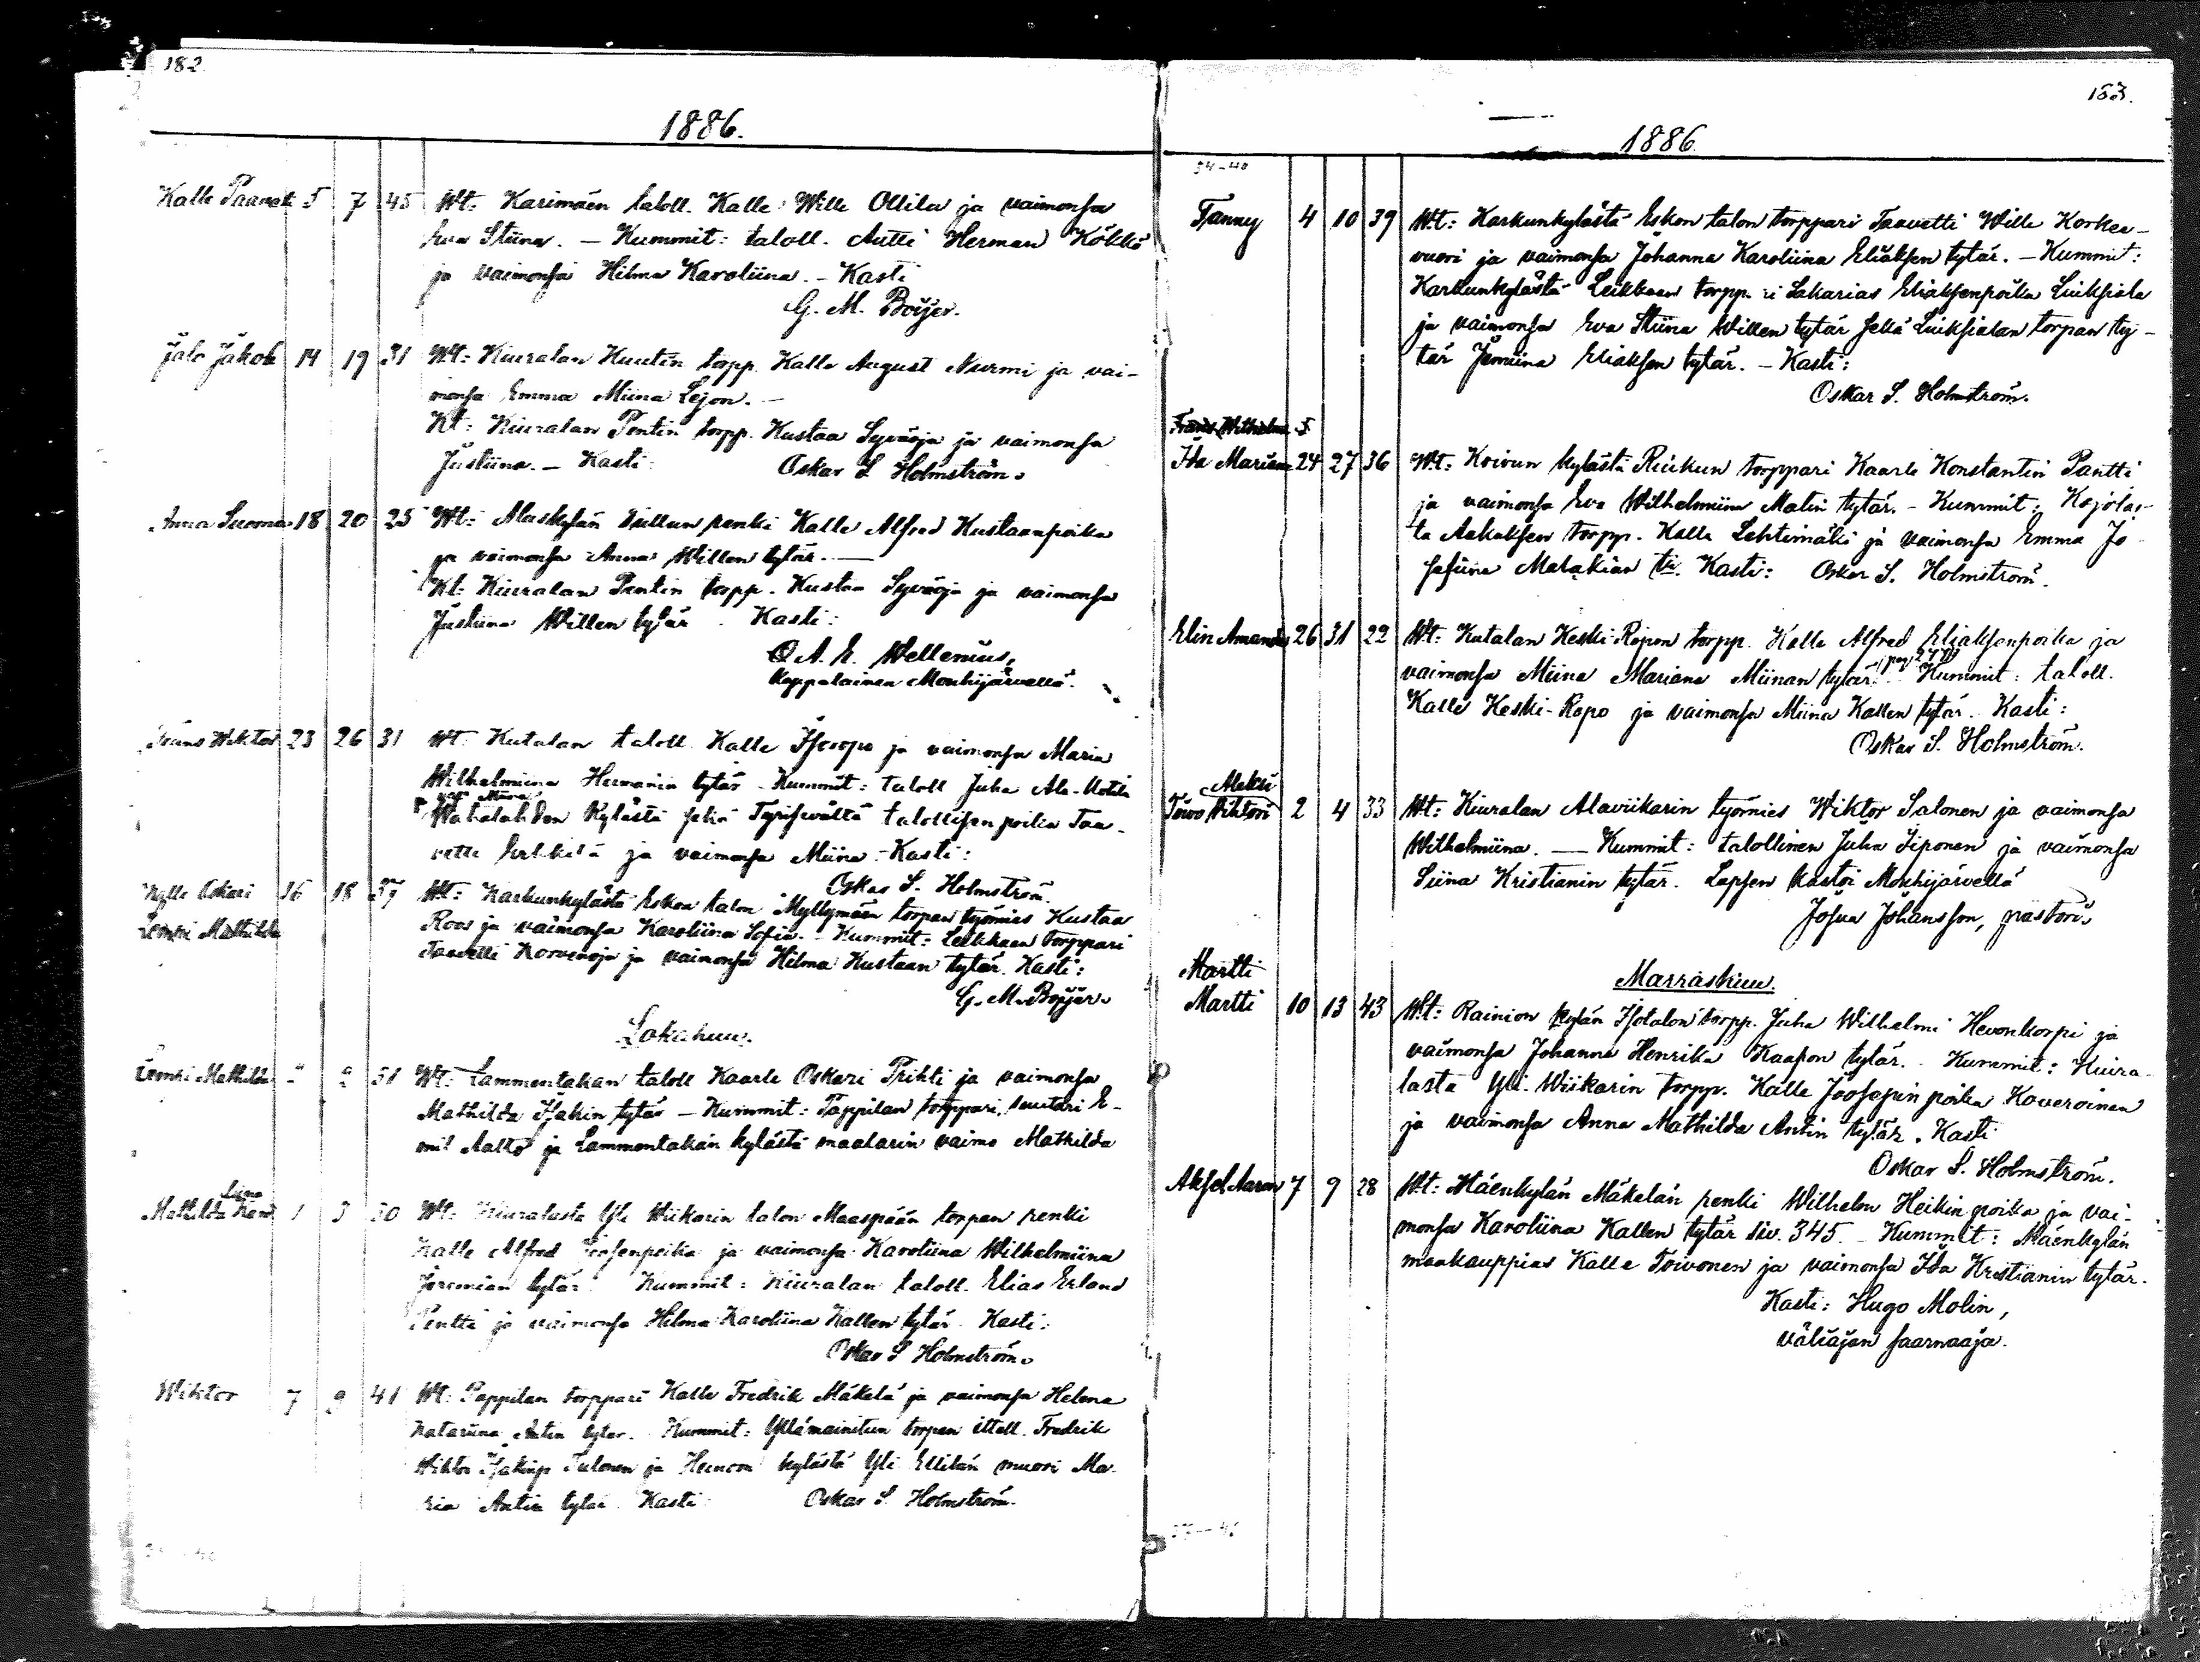 182
1886.
Kalle Taavet 5 7 45 Wt: Karimäen taloll. Kalle Wille Ollila ja vaimonsa
Eva Stiina. — Kummit: taloll. Antti Herman Kökkö
ja vaimonsa Hilma Karoliina. — Kasti
G. M. Boijer.
Jalo Jakob 14 19 31 Wt: Kiuralan Kuutin torpp. Kalle August Nurmi ja vai-
monsa Emma Miina Lejon. —
Kt: Kiuralan Pentin torpp. Kustaa Syväoja ja vaimonsa
Justiina. — Kasti: Oskar S. Holmström.
Anna Suoma 18 20 25 Wt: Aluskylän renki Kalle Alfred Kustaanpoika
ja vaimonsa Anna Willen tytär. —
Kt: Kiuralan Pentin torpp. Kustaa Syväoja ja vaimonsa
Justiina Willen tytär. Kasti:
O. A. E. Hellenius,
kappalainen Mouhijärvellä.
Frans Wiktor 23 26 31 Wt: Kutalan taloll. Kalle Isoropo ja vaimonsa Maria
Wilhelmiina Hermanin tytär. Kummit: taloll Juha Ala-Uotila
kylästä sekä Tyrisevältä talollisen poika Taa-
vetti Erkkilä ja vaimonsa Miina. Kasti:
Oskar S. Holmström.
Kylle Oskari 16 18 37 Wt: Karkunkylästä Eskon talon Myllymäen torpan työmies Kustaa
Lempi Mathilda
Roos ja vaimonsa Karoliina Sofia. — Kummit: Leikkaan torppari
Taavetti Korvenoja ja vaimonsa Hilma Kustaan tytär. Kasti:
G. M. Boijer.
Lokakuu.
Lempi Mathilda 2 31 Wt: Lammentakan taloll Kaarle Oskari Prihti ja vaimonsa
Mathilda Isakin tytär — Kummit: Pappilan torppari, suutari E-
mil Aalto ja Lammentakan kylästä maalarin vaimo Mathilda
Mathilda 1 3 30 Wt: Kiuralasta Yli Wiikarin talon Maaspään torpan renki
Kalle Alfred ja vaimonsa Karoliina Wilhelmiina
Jeremian tytär. Kummit: Kiuralan taloll. Elias Erland
Pentti ja vaimonsa Hilma Karoliina Kallen tytär. Kasti:
Oskar S Holmström.
Wiktor 7 9 41 Wt: Pappilan torppari Kalle Fredrik Mäkelä ja vaimonsa Helena
Katariina Antin tytär. Kummit: Yllämainitun torpan ittell. Fredrik
Wiktor Tulonen ja kylästä Yli Ellilän muori Ma-
ria Antin tytär. Kasti: Oskar S. Holmström.
183.
1886.
34-40
Fanny 4 10 39 Wt: Karkunkylästä Eskon talon torppari Taavetti Wille Korkea-
vuori ja vaimonsa Johanna Karoliina Eliaksen tytär. — Kummit:
Karkunkylästä Leikkaan torppari Sakarias Eliaksenpoika Luiksiala
ja vaimonsa Eva Stiina Willen tytär sekä Luiksialan torpan ty-
tär Jemiina Eliaksen tytär. — Kasti:
Oskar S. Holmström.
Frans Wilhelm 5
Ida Mariana 24 27 36 Wt: Koivun kylästä Riukun torppari Kaarle Konstantin Pantti
ja vaimonsa Eva Wilhelmiina Matin tytär. — Kummit: Kojolas-
ta Aakaksen torpp. Kalle Lehtimäki ja vaimonsa Emma Jo
sefiina Malakian tr. Kasti: Oskar S. Holmström.
Elin Amanda 26 31 22 Wt: Kutalan Keski-Ropon torpp. Kalle Alfred Eliaksenpoika ja
vaimonsa Miina Mariana Miinan tytär (pag 277). Kummit: taloll.
Kalle Keski-Ropo ja vaimonsa Miina Kallen tytär. Kasti:
Oskar S. Holmström.
Aleksi
Toivo Wihtori 2 4 33 Wt: Kiuralan Alaviikarin työmies Wiktor Salonen ja vaimonsa
Wilhelmiina. — Kummit: talollinen Juha Siponen ja vaimonsa
Siina Kristianin tytär. Lapsen kastoi Mouhijärvellä
Josua Johansson, pastori.
Marraskuu.
Martti
Martti 10 13 43 Wt: Rainion kylän Isotalon torpp. Juha Wilhelmi Hevonkorpi ja
vaimonsa Johanna Henrika Kaapon tytär. — Kummit: Kiura-
lasta Yli-Wiikarin torpp. Kalle Joosepin poika Koveroinen
ja vaimonsa Anna Mathilda Antin tytär. Kasti
Oskar S. Holmström.
Aksel Aaron 7 9 28 Wt: Mäenkylän Mäkelän renki Wilhelm Heikin poika ja vai-
monsa Karoliina Kallen tytär siv. 345. — Kummit: Mäenkylän
maakauppias Kalle Toivonen ja vaimonsa Ida Kristianin tytär.
Kasti: Hugo Molin,
väliajan saarnaaja.